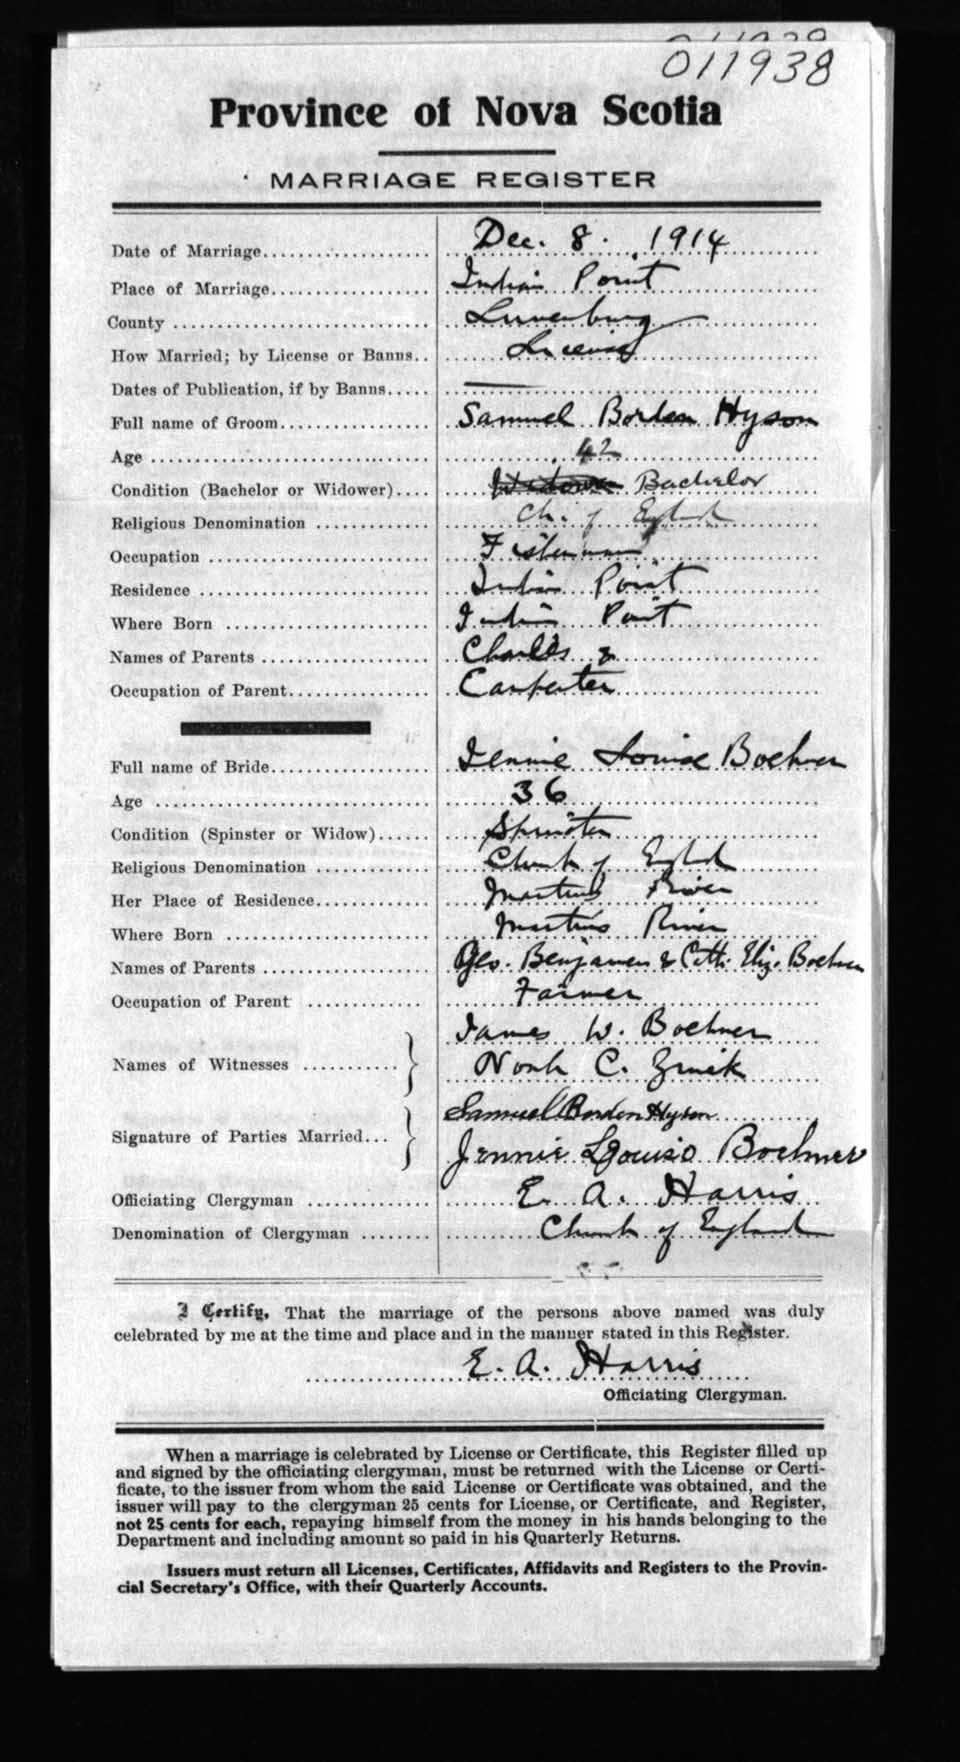 011938
Province of Nova Scotia
MARRIAGE REGISTER
Date of Marriage Dec. 8. 1914
Place of Marriage Indian Point
County Lunenburg
How Married; by License or Banns License
Dates of Publication, if by Banns —
Full name of Groom Samuel Borden Hyson
Age 42
Condition (Bachelor or Widower) Bachelor
Religious Denomination Ch. of England
Occupation Fisherman
Residence Indian Point
Where Born Indian Point
Names of Parents Charles &
Occupation of Parent Carpenter
Full name of Bride Jennie Louise Boehner
Age 36
Condition (Spinster or Widow) Spinster
Religious Denomination Church of England
Her Place of Residence Martins River
Where Born Martins River
Names of Parents Geo. Benjamen & Cath. Eliz. Boehner
Occupation of Parent Farmer
James W. Boehner
Names of Witnesses
Noah C. Zwick
Samuel Borden Hyson
Signature of Parties Married
Jennie Louise Boehner
Officiating Clergyman E. A. Harris
Denomination of Clergyman Church of England
I Certify, That the marriage of the persons above named was duly
celebrated by me at the time and place and in the manner stated in this Register.
E. A. Harris
Officiating Clergyman.
When a marriage is celebrated by License or Certificate, this Register filled up
and signed by the officiating clergyman, must be returned with the License or Certi-
ficate, to the issuer from whom the said License or Certificate was obtained, and the
issuer will pay to the clergyman 25 cents for License, or Certificate, and Register,
not 25 cents for each, repaying himself from the money in his hands belonging to the
Department and including amount so paid in his Quarterly Returns.
Issuers must return all Licenses, Certificates, Affidavits and Registers to the Provin-
cial Secretary's Office, with their Quarterly Accounts.